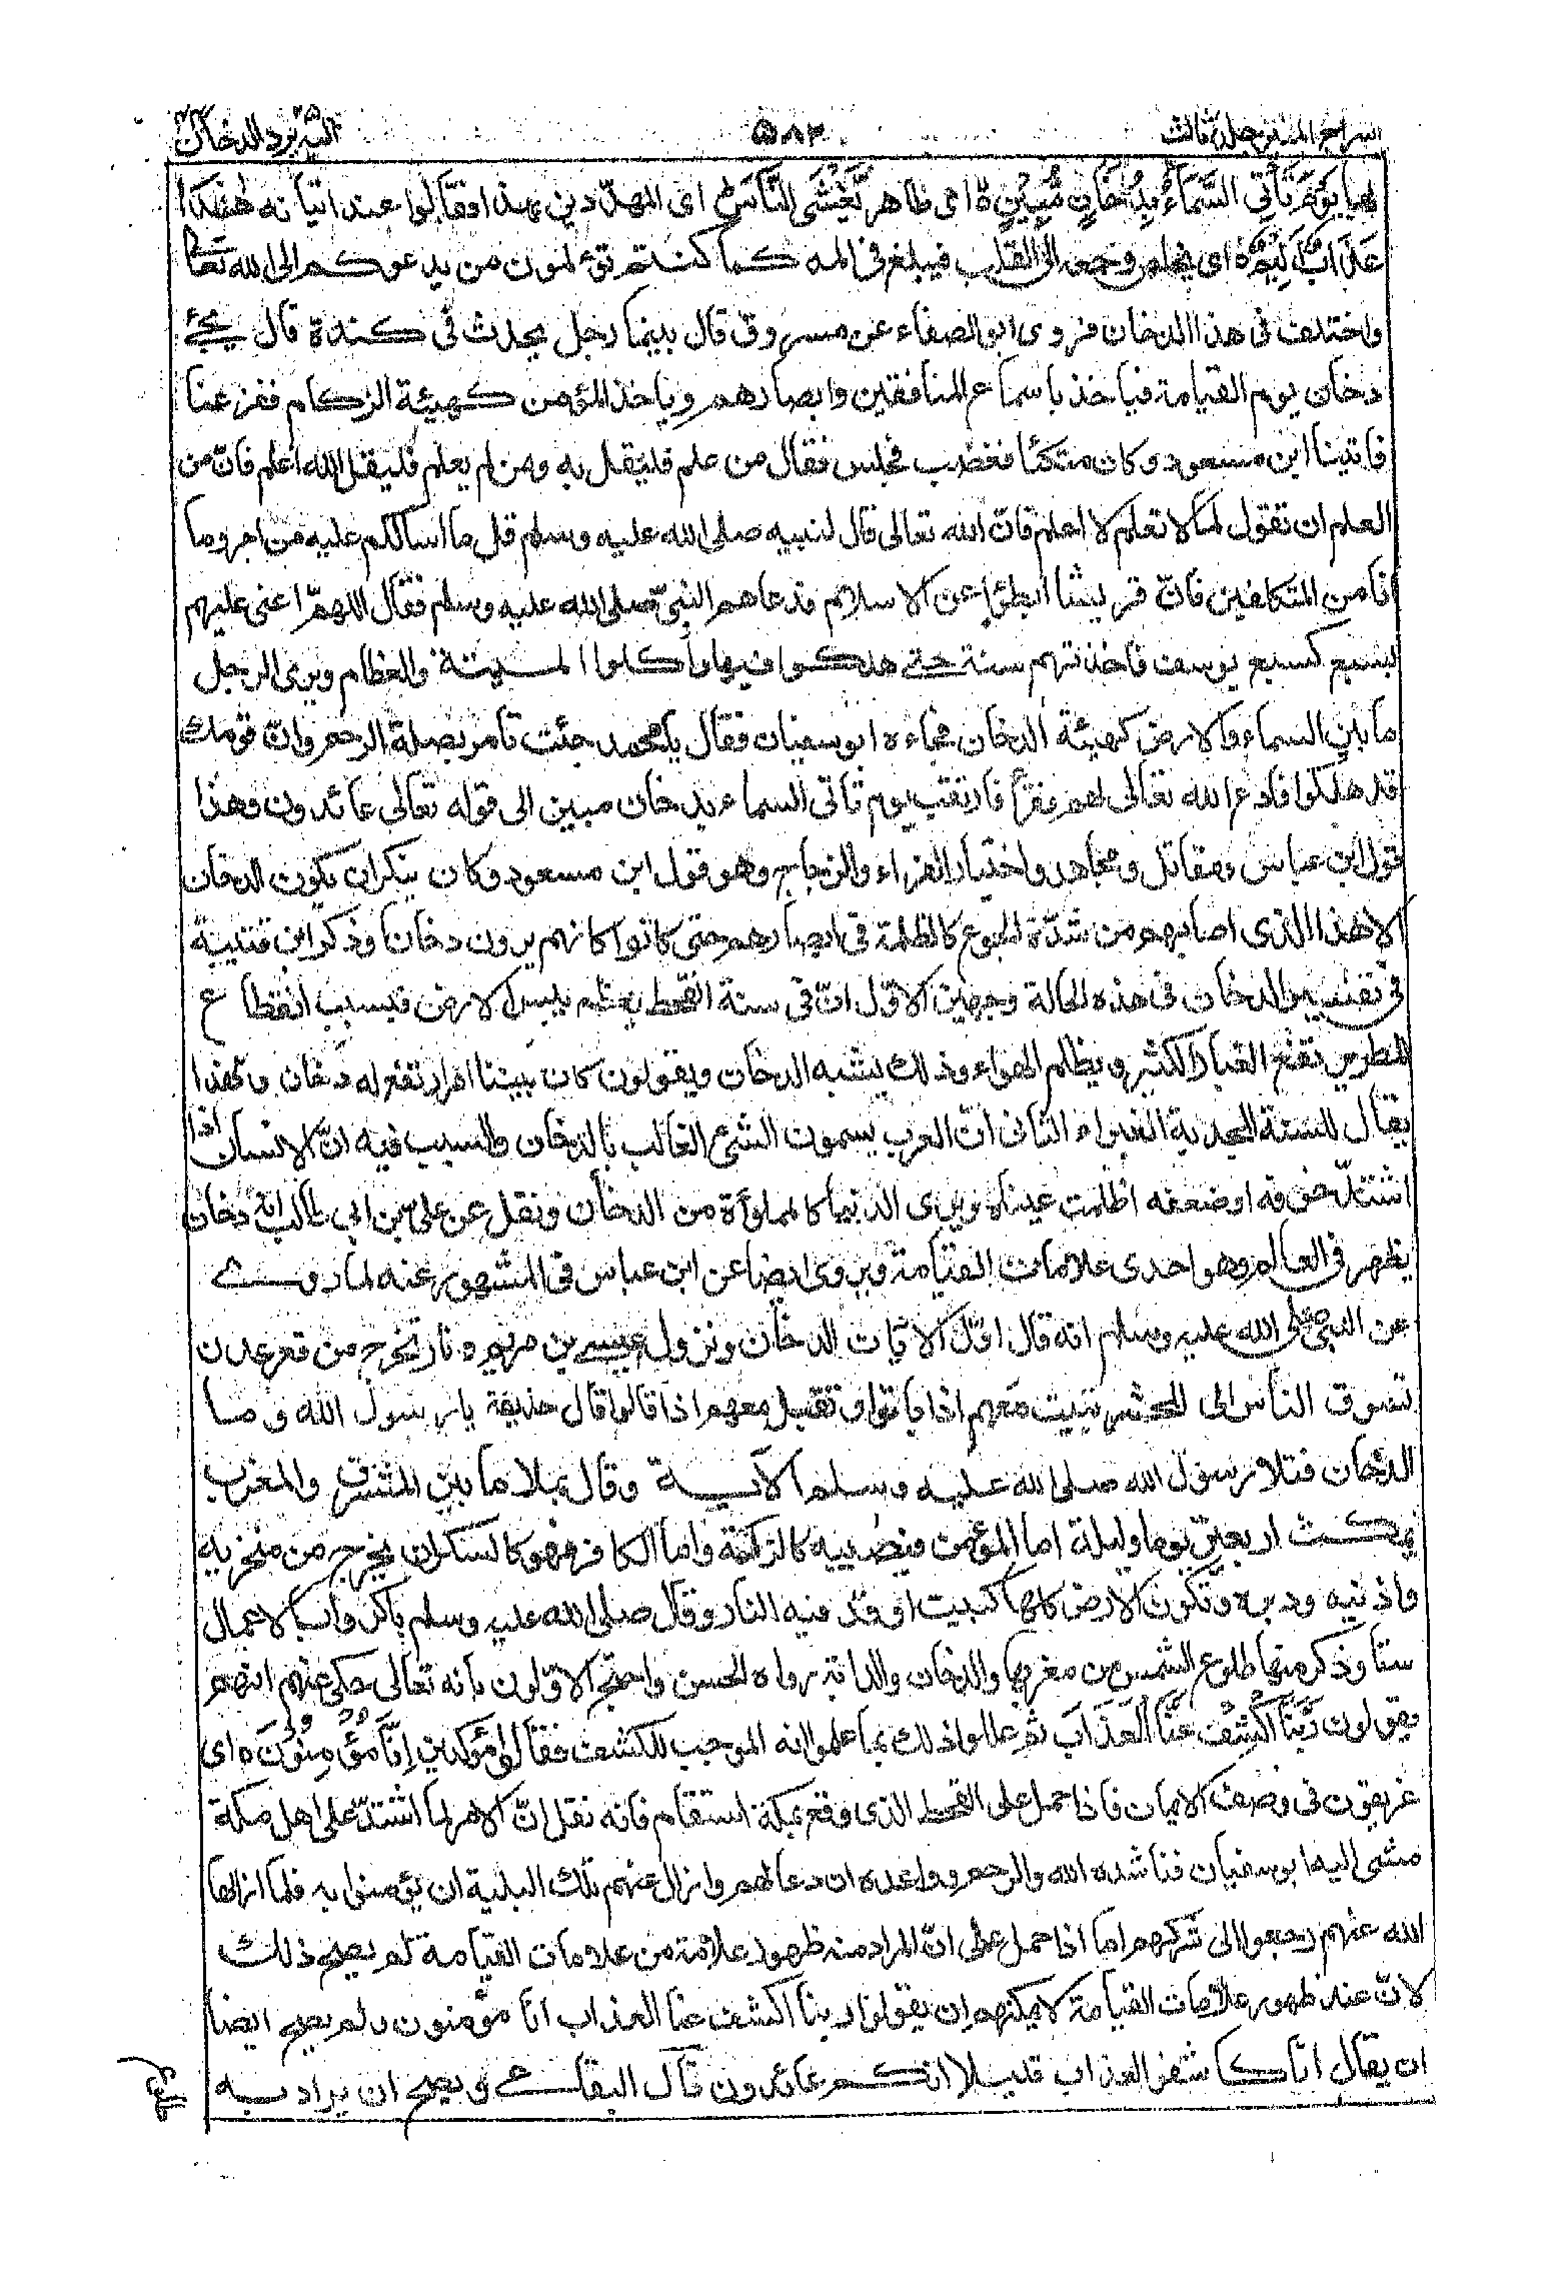 السراج المنير جلد ثالث ٥٨٣ اليه يرد الدخان
يوم تأتي السَّمَاءُ بِدُخَانٍ مُّبِيْنٍ ه اى ظاهر يَّغْشَى النَّاسَ ط اى المهدّدين بهذا فقالوا عند اتيانه هٰذَا
عَذَابٌ اَلِيْمٌ ه اى يخلص وجعه الى القلب فيبلغ فى المه كما كنتم تؤلمون من يدعوكم الى الله تعالى
واختلف فى هذا الدخان فروى ابو الصفاء عن مسروق قال بينما رجل يحدث فى كندة قال يجئ
دخان يوم القيامة فياخذ باسماع المنافقين وابصارهم وياخذ المؤمن كهيئة الزكام ففزعنا
فاتينا ابن مسعود وكان متكئا فغضب فجلس فقال من علم فليقل به ومن لم يعلم فليقل الله اعلم فانّ من
العلم ان تقول لما لا تعلم لا اعلم فانّ الله تعالى قال لنبيه صلى الله عليه وسلم قل ما اسالكم عليه من اجر وما
انا من المتكلفين فانّ قريشا ابطؤا عن الاسلام فدعاهم النبىّ صلى الله عليه وسلم فقال اللهمّ اعنى عليهم
بسبع كسبع يوسف فاخذتهم سنة حتى هلكوا فيها واكلوا الميتة والعظام ويرى الرجل
ما بين السماء والارض كهيئة الدخان فجاءه ابو سفيان فقال يا محمد جئت تامر بصلة الرحم وانّ قومك
قد هلكوا فادع الله تعالى لهم فقرأ فارتقب يوم تاتى السماء بدخان مبين الى قوله تعالى عائدون وهذا
قول ابن عباس ومقاتل ومجاهد واختيار الفراء والزجاج وهو قول ابن مسعود وكان ينكر ان يكون الدخان
الا هذا الذى اصابهم من شدّة الجوع كالظلمة فى ابصارهم حتى كانوا كانهم يرون دخانا وذكر ابن قتيبة
فى تفسير الدخان فى هذه الحالة وجهين الاوّل انّ فى سنة القحط يعظم يبس الارض فبسبب انقطاع
المطر يرتفع الغبار الكثير ويظلم الهواء وذلك يشبه الدخان ويقولون كان بيننا امر ارتفع له دخان ولهذا
يقال للسنة المجدبة الغبراء الثانى انّ العرب يسمون الشئ الغالب بالدخان والسبب فيه انّ الانسان اذا
اشتدّ خوفه او ضعفه اظلمت عيناه ويرى الدنيا كالمملوأة من الدخان ونقل عن على بن ابى طالب انه دخان
يظهر فى العالم وهو احدى علامات القيامة ويروى ايضا عن ابن عباس فى المشهور عنه لما روى
عن النبى صلى الله عليه وسلم انه قال اوّل الآيات الدخان ونزول عيسى بن مريم ه نار تخرج من قعر عدن
تسوق الناس الى المحشر تبيت معهم اذا باتوا وتقيل معهم اذا قالوا قال حذيفة يا رسول الله وما
الدخان فتلا رسول الله صلى الله عليه وسلم الآية وقال يملا ما بين المشرق والمغرب
يمكث اربعين يوما وليلة اما المؤمن فيصيبه كالزكمة واما الكافر فهو كالسكران يخرج من منخريه
واذنيه ودبره وتكون الارض كلها كبيت اوقد فيه النار وقال صلى الله عليه وسلم باكروا بالاعمال
ستا وذكر منها طلوع الشمس من مغربها والدخان والدابة رواه الحسن واحتج الاوّلون بانه تعالى حكى عنهم انهم
يقولون رَبَّنَا اكْشِفْ عَنَّا الْعَذَابَ ثم عللوا ذلك بما علموا انه الموجب للكشف فقالوا مؤكدين اِنَّا مُؤْمِنُوْنَ ه اى
عريقون فى وصف الايمان فاذا حمل على القحط الذى وقع بمكة استقام فانه نقل انّ الامر لما اشتدّ على اهل مكة
مشى اليه ابو سفيان فناشده الله والرحم وواعده ان دعا لهم وازال عنهم تلك البلية ان يؤمنوا به فلما ازالها
الله عنهم رجعوا الى شركهم اما اذا حمل على انّ المراد منه ظهور علامة من علامات القيامة لم يصح ذلك
لانّ عند ظهور علامات القيامة لا يمكنهم ان يقولوا ربنا اكشف عنا العذاب انا مؤمنون ولم يصح ايضا
ان يقال انا كاشفوا العذاب قليلا انكم عائدون قال البقاعى ويصح ان يراد به